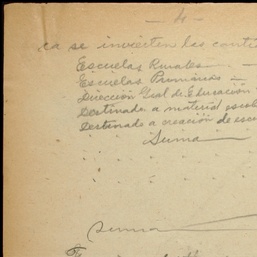 - 4 -
ca se invierten las canti
Escuelas Rurales
Escuelas Primarias
Dirección Gral de Educación
Destinado a material escol
Destinado a creación de escu
Suma
Suma